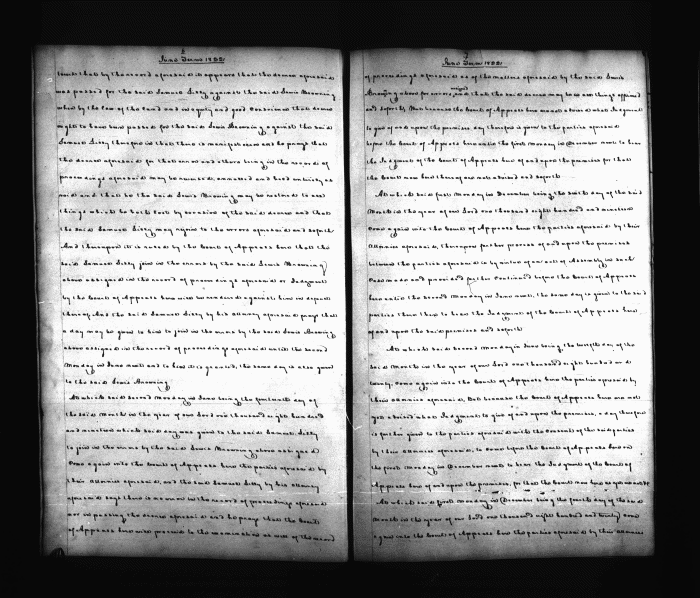 June Term 1822
that by the record aforesaid it appears that the decree aforesaid
was passed for the said Samuel Lilly against the said Lewis Browning
when by the law of the land and in equity and good Conscience that decree
ought to have been passed for the said Lewis Browning against the said
Samuel Lilly therefore in that there is manifest error and he prays that
the decree aforesaid for that error and others being in the record of
proceedings aforesaid may be reversed, annulled and held entirely as
void and that he the said Lewis Browning may be restored to all
things which he hath lost by occasion of the said decree and that
the said Samuel Lilly may rejoin to the errors aforesaid and so forth
And thereupon it is ruled by the Court of Appeals here that the
said Samuel Lilly join in the errors by the said Lewis Browning
above assigned in the record of proceedings aforesaid or Judgment
by the Court of Appeals here will be rendered against him in default
thereof. And the said Samuel Lilly by his attorney aforesaid prays that
a day may be given to him to join in the errors by the said Lewis Browning
above assigned in the record of proceedings aforesaid until the second
Monday in June next and to him it is granted, the same day is also given
to the said Lewis Browning
At which said second Monday in June being the fourteenth day of
the said month in the year of our Lord one thousand eight hundred
and nineteen which said day was given to the said Samuel Lilly
to join in the errors by the said Lewis Browning above assigned
Come again into the Court of Appeals here the parties aforesaid by
their attornies aforesaid, and the said Samuel Lilly by his attorney
aforesaid says there is no error in the record of proceedings aforesaid
nor in passing the decree aforesaid and he prays that the Court
of Appeals here will proceed to the examination as well of the record
June Term 1822
of proceedings aforesaid as of the matters aforesaid by the said Lewis
Browning above for errors assigned, and that the said decree may be in all things affirmed
and so forth, But because the Court of Appeals here are not advised what Judgment
to give of and upon the premises day therefore is given to the parties aforesaid
before the Court of Appeals here until the first Monday in December next to hear
the Judgment of the Court of Appeals here of and upon the premises for that
the Court now here thereof are not advised and so forth
At which said first Monday in December being the sixth day of the said
Month in the year of our Lord one thousand eight hundred and nineteen
Come again into the Court of Appeals here the parties aforesaid by their
Attornies aforesaid, thereupon further process of and upon the premises
between the parties aforesaid is by virtue of an act of Assembly in such
Case made and provided further Continued before the Court of Appeals
here until the second Monday in June next, the same day is given to the said
parties then here to hear the Judgment of the Court of Appeals here
of and upon the said premises and so forth
At which said second Monday in June being the twelfth day of the
said Month in the year of our Lord one thousand eight hundred and
twenty, Come again into the Court of Appeals here the parties aforesaid by
their attornies aforesaid, But because the Court of Appeals here are not
yet advised what Judgment to give of and upon the premises, a day therefore
is further given to the parties aforesaid with the Consent of the said parties
by their attornies aforesaid, to Come before the Court of Appeals here on
the first Monday in December next to hear the Judgment of the Court of
Appeals here of and upon the premises, for that the Court now here
At which said first Monday in December being the fourth day of the said
Month in the year of our Lord one thousand eight hundred and twenty, Come
again into the Court of Appeals here the parties aforesaid by their attornies